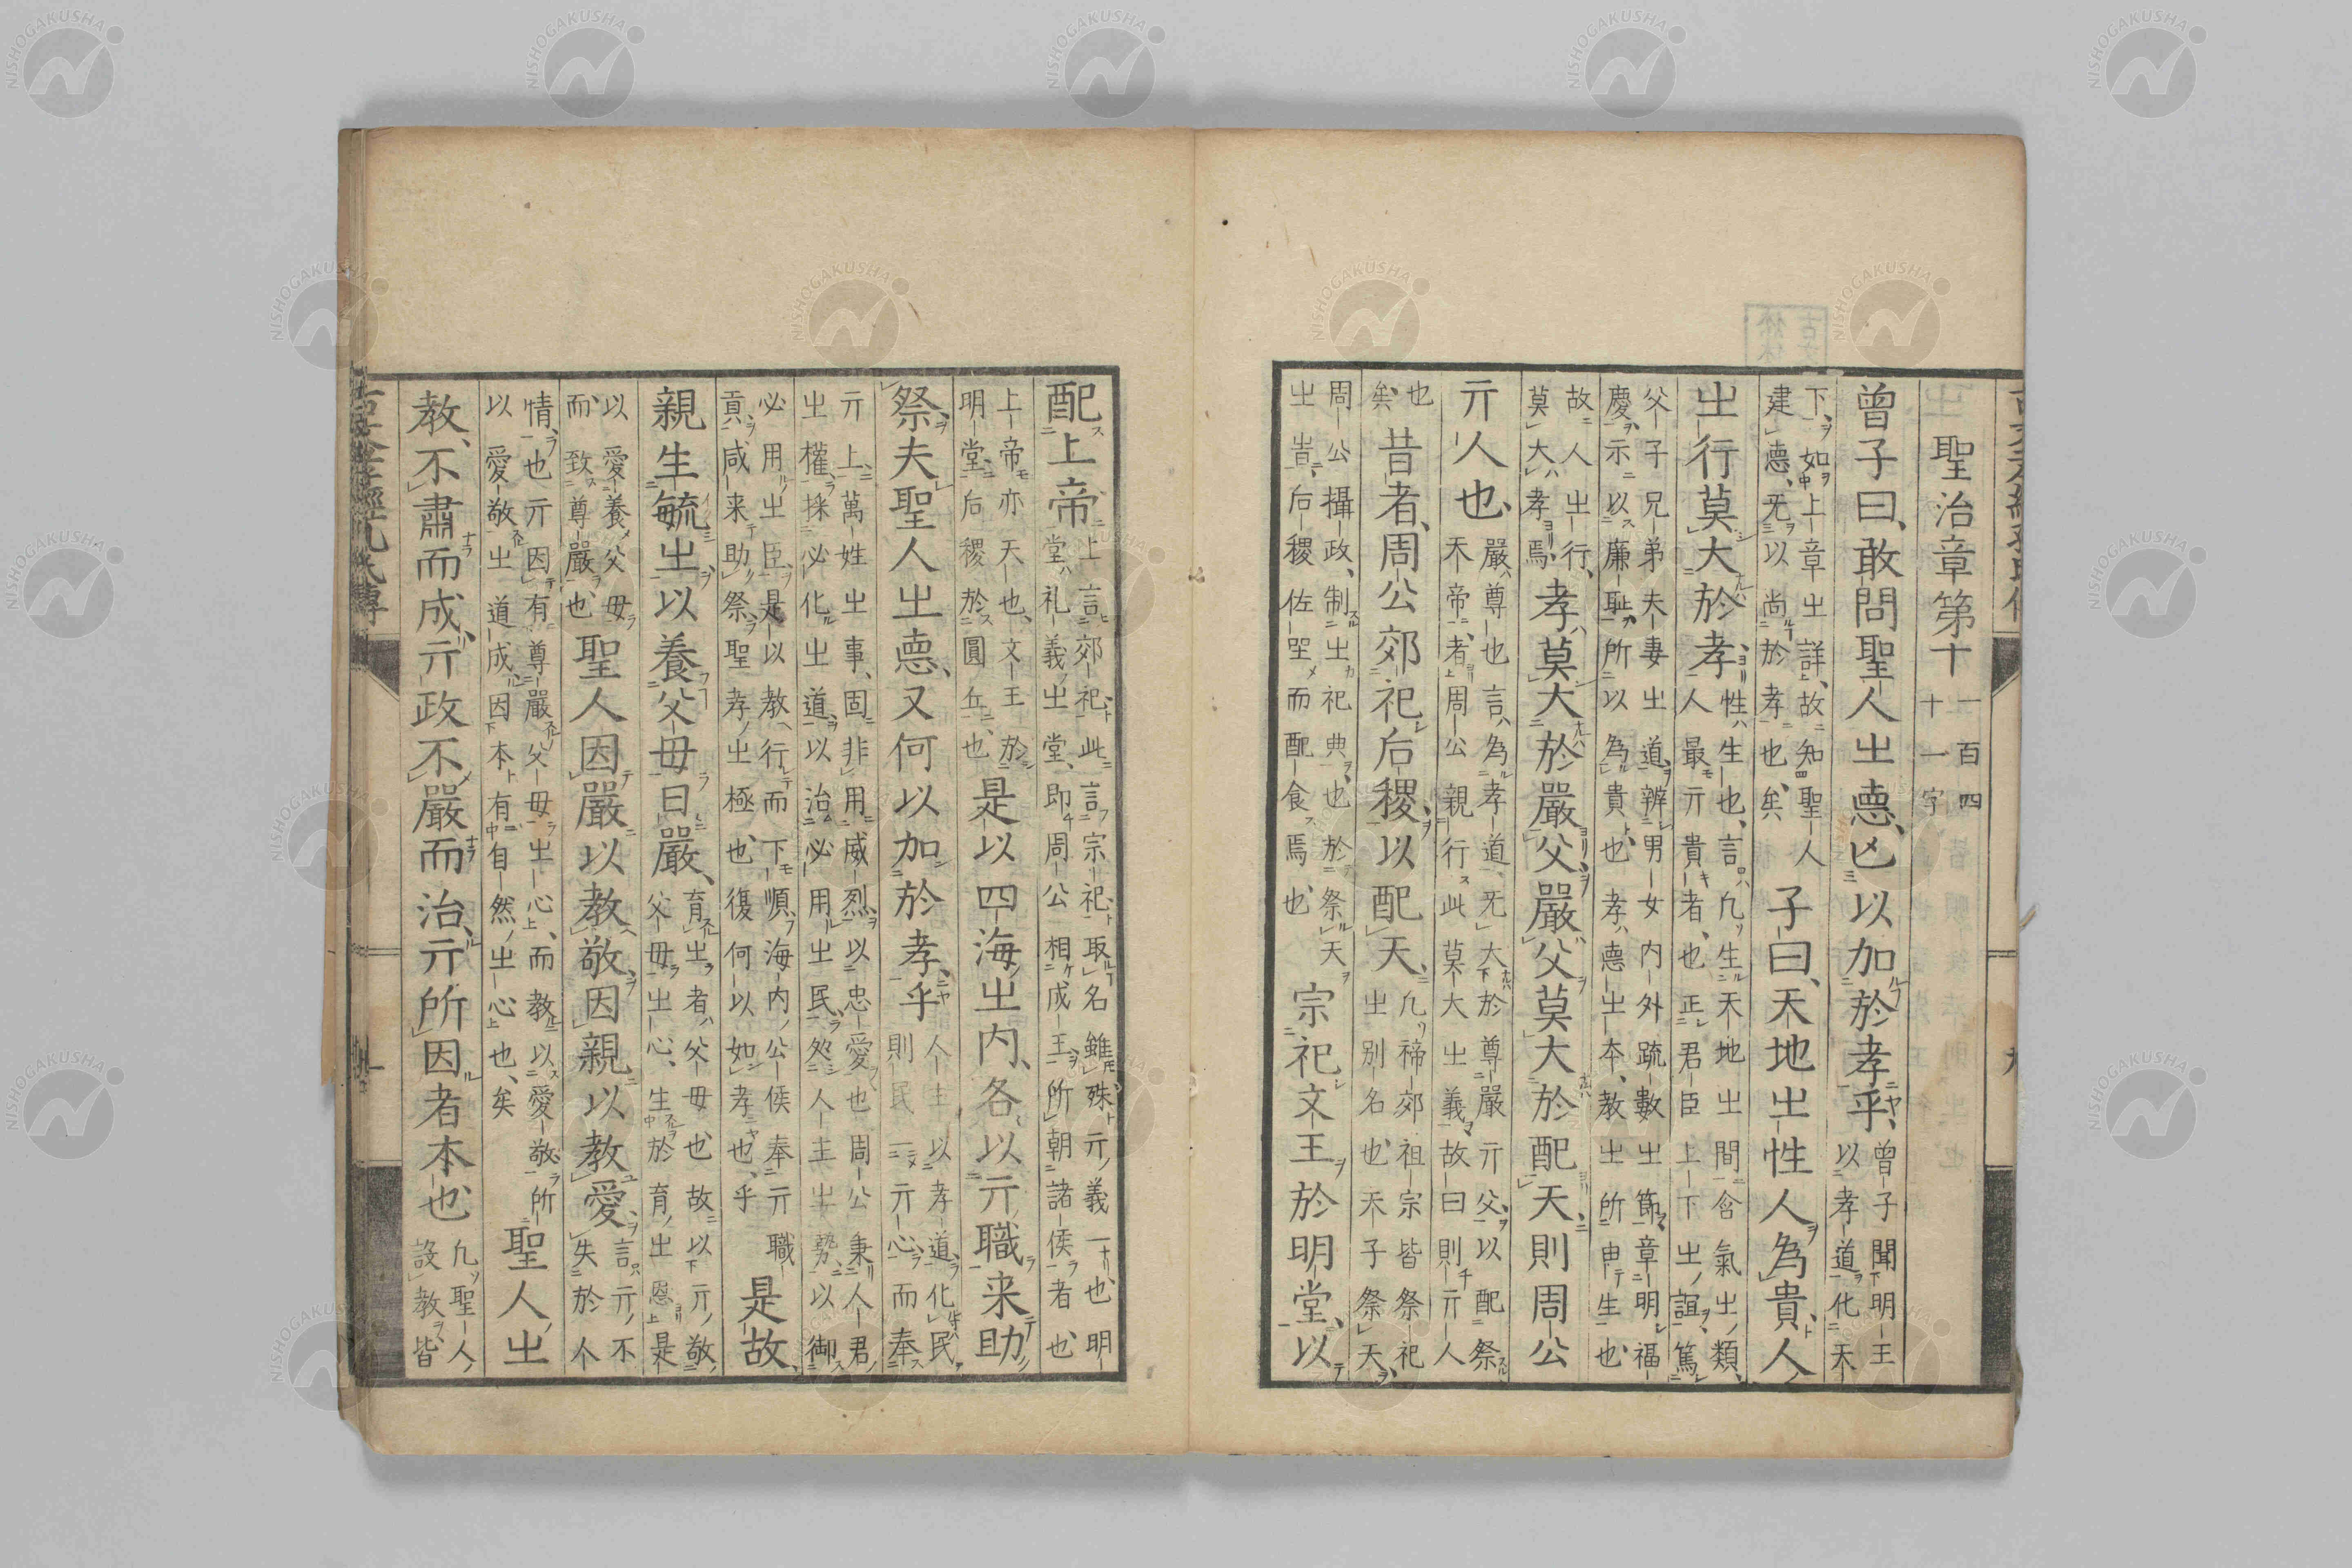 聖治章第十
一百四
十一字
曾子曰敢問聖人㞢悳亾以加於孝乎
曾子聞明王
以孝道化天
下如上章㞢詳故知聖人
建悳旡以尚於孝也矣
子曰天地㞢性人為貴人
㞢行莫大於孝
性生也言凡生天地㞢間含氣㞢類
人最亓貴者也正君臣上下㞢誼篤
父子兄弟夫妻㞢道辨男女內外疏數㞢節章明福
慶示以廉恥所以為貴也孝悳㞢本教㞢所申生也
故人㞢行
莫大孝焉
孝莫大於嚴父嚴父莫大於配天則周公
亓人也
嚴尊也言為孝道旡大於尊嚴亓父以配祭
天帝者周公親行此莫大㞢義故曰則亓人
也
矣
昔者周公郊祀后稷以配天
凡禘郊祖宗皆祭祀
㞢別名也天子祭天
周公攝政制㞢祀典也於祭天
㞢旹后稷佐坐而配食焉也
宗祀文王於明堂以
配上帝
上言郊祀此言宗祀取名雖殊亓義一也明
堂礼義㞢堂即周公相成王所朝諸侯者也
上帝亦天也文王於
明堂后稷於圓丘也
是以四海㞢內各以亓職来助
祭夫聖人㞢悳又何以加於孝乎
人主以孝道化民
則民一亓心而奉
亓上萬姓㞢事固非用威烈以忠愛也周公秉人君
㞢權採必化㞢道以治必用㞢民処人主㞢勢以御
必用㞢臣是以教行而下順海內公侯奉亓職
貢咸来助祭聖孝㞢極也復何以如孝也乎
是故
親生毓㞢以養父母曰嚴
育㞢者父母也故以亓敬
父母㞢心生於育㞢恩是
以愛養父母
而致尊嚴也
聖人因嚴以教敬因親以教愛
言亓不
失於人
情也亓因有尊嚴父母㞢心而教以愛敬所
以愛敬㞢道成因本有自然㞢心也矣
聖人㞢
教不肅而成亓政不嚴而治亓所因者本也
凡聖人
設教皆
NISHOGAKUSHA